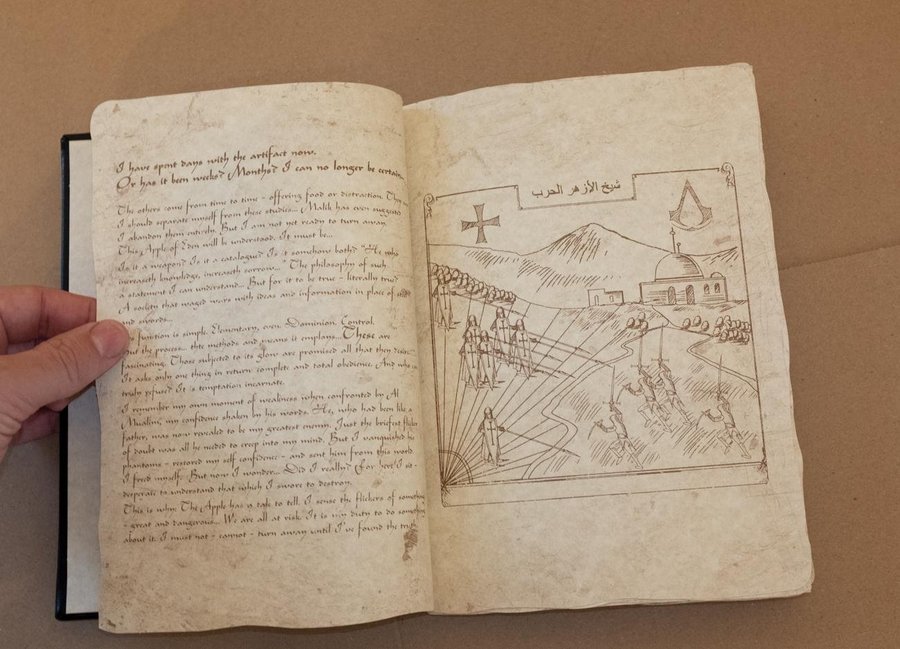 I have spent days with the artifact now.
Or has it been weeks? Months? I can no longer be certain...
The others come from time to time - offering food or distraction. They
I should separate myself from these studies... Malik has even suggested
I abandon them entirely. But I am not yet ready to turn away.
This Apple of Eden will be understood. It must be...
Is it a weapon? Is it a catalogue? Is it somehow both? "He who
increaseth knowledge, increaseth sorrow..." The philosophy of such
a statement I can understand... But for it to be true - literally true?
A society that waged wars with ideas and information in place of steel
and swords...
function is simple. Elementary, even. Dominion. Control.
But the process... the methods and means it employs... These are
fascinating. Those subjected to its glow are promised all that they desire.
It asks only one thing in return: complete and total obedience. And who can
truly refuse? It is temptation incarnate.
I remember my own moment of weakness when confronted by Al
Mualim, my confidence shaken by his words. He, who had been like a
father, was now revealed to be my greatest enemy. Just the briefest flicker
of doubt was all he needed to creep into my mind. But I vanquished his
phantoms - restored my self confidence - and sent him from this world.
I freed myself. But now I wonder... Did I really? For here I sit -
desperate to understand that which I swore to destroy.
This is why: The Apple has a tale to tell. I sense the flickers of something
- great and dangerous... We are all at risk. It is my duty to do something
about it. I must not - cannot - turn away until I've found the truth.
شيخ الأزهر الحرب